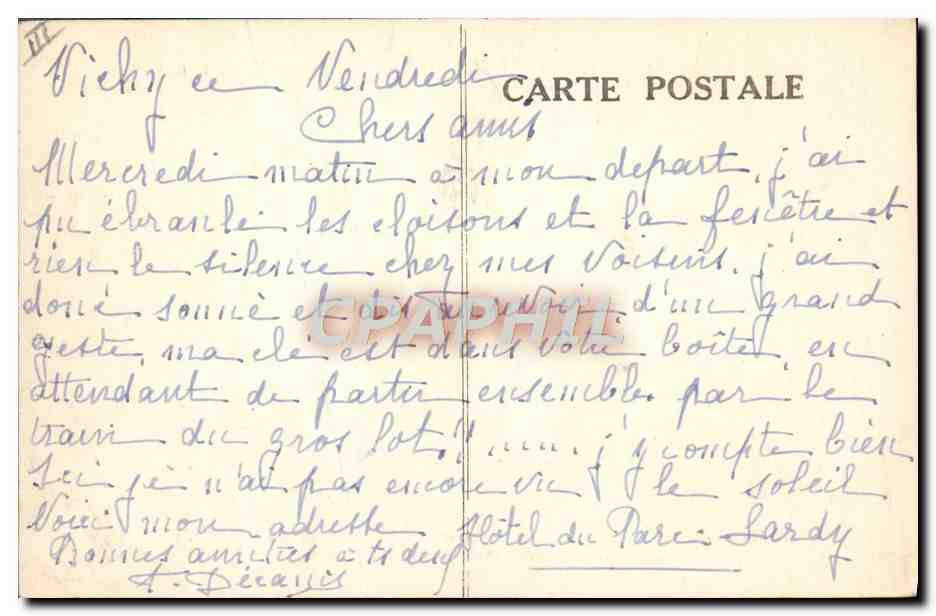 III
Vichy ce Vendredi
CARTE POSTALE
Chers amis
Mercredi matin à mon depart, j'ai
pu ébranlé les cloisons et la fenêtre et
rien le silence chez mes voisins. j'ai
donc sonné et dis au revoir d'un grand
geste, ma clé est dans votre boîte, en
attendant de partir ensemble par le
train du gros lot!! ...... j'y compte bien
Ici je n'ai pas encore vu le soleil
Voici mon adresse Hôtel du Parc Lardy
Bonnes amitiés à ts deux
CPAPHIL